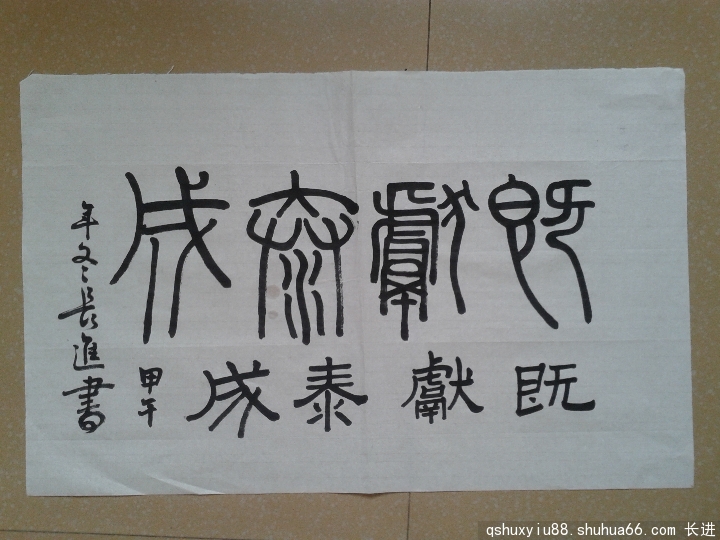 既獻泰成
既獻泰成
甲午
年冬長進書
qshuxyiu88.shuhua66.com 长进